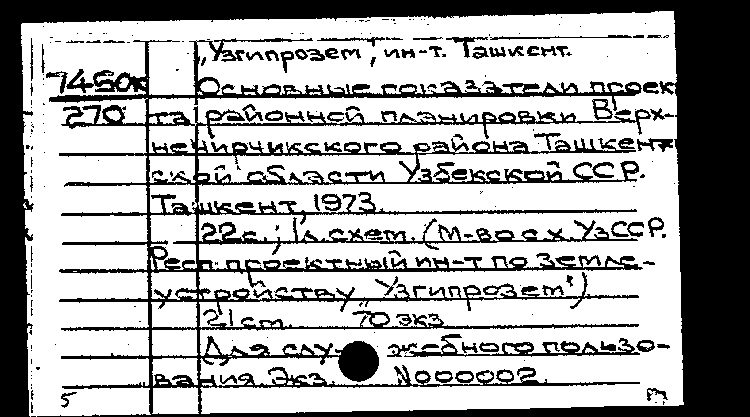 „Узгипрозем", ин-т. Ташкент.
74-50к Основные показатели проек
270 та районной планировки Верх-
нечирчикского района Ташкент-
ской области Узбекской ССР.
Ташкент, 1973.
22с.; 1л.схем. (М-во с.х. УзССР.
Респ. проектный ин-т по земле-
устройству „Узгипрозем")
21 см. 70 экз
Для служебного пользо-
вания. Экз. N000002.
5